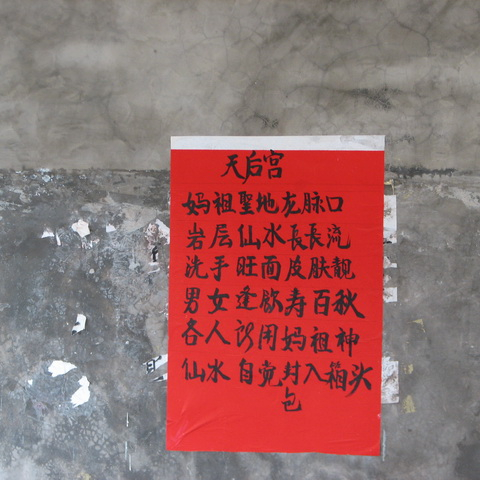 天后宫
妈祖聖地龙脉口
岩层仙水長長流
洗手旺面皮肤靓
男女逢飲寿百秋
各人所用妈祖神
仙水自觉封入箱头
包